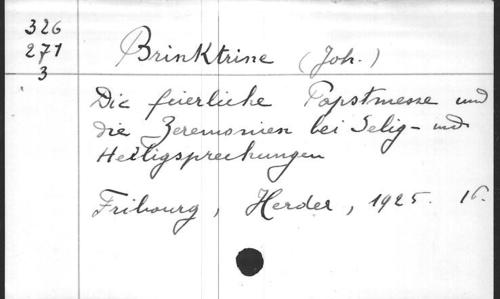 326
271
3
Brinktrine (Joh.)
Die feierliche Papstmesse und
die Zeremonien bei Selig- und
Heiligsprechungen
Fribourg, Herder, 1925. 16.